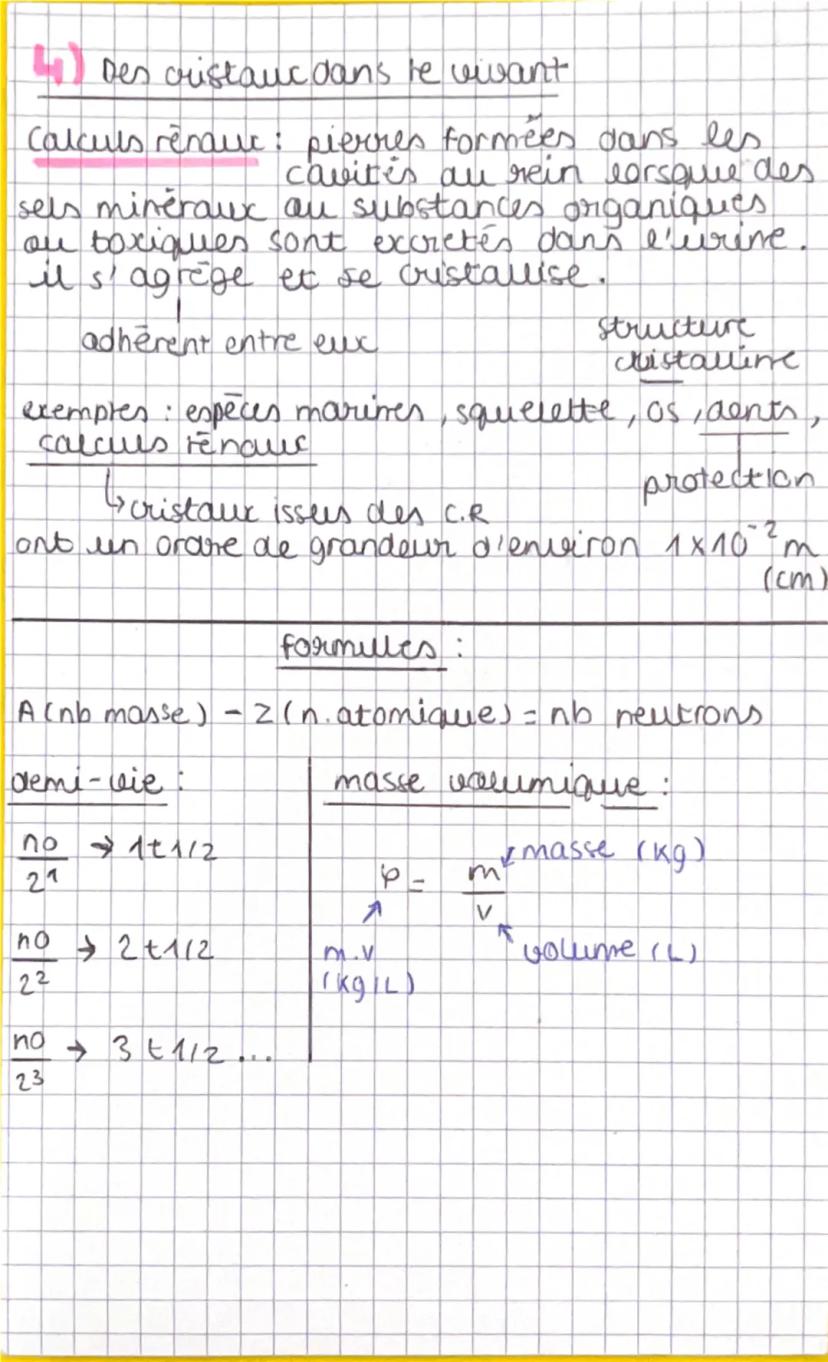 4) Des cristaux dans le vivant
Calculs rénaux : pierres formées dans les
cavités du rein lorsque des
sels minéraux ou substances organiques
ou toxiques sont excrétés dans l'urine.
il s'agrège et se cristallise.
adhèrent entre eux
structure
cristalline
exemples : espèces marines, squelette, os, dents,
calculs rénaux
protection
↳ cristaux issus des C.R
ont un ordre de grandeur d'environ 1 x 10⁻² m
(cm)
formules :
A (nb masse) - Z (n. atomique) = nb neutrons
demi-vie :
n0/2¹ → 1 t 1/2
n0/2² → 2 t 1/2
n0/2³ → 3 t 1/2 ...
masse volumique :
ρ = m/v
masse (kg)
volume (L)
m.v
(kg/L)